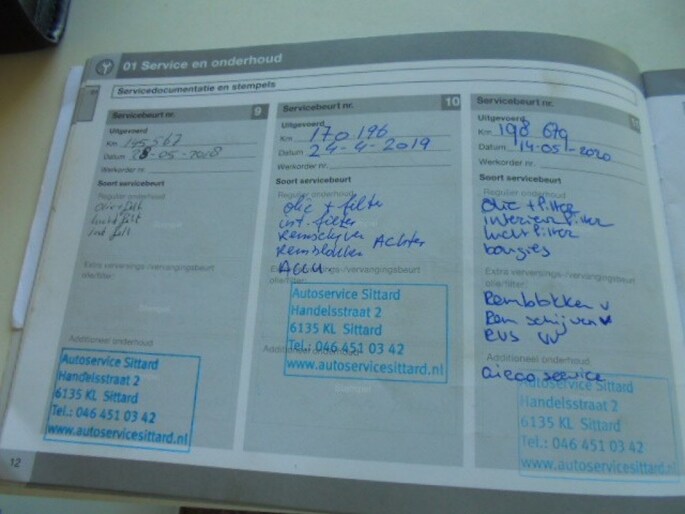 01 Service en onderhoud
Servicedocumentatie en stempels
Servicebeurt nr. 9
Uitgevoerd
Km 145.567
Datum 28-05-2018
Werkorder nr.
Soort servicebeurt
Regulier onderhoud
olie + filt
lucht filt
int filt
Extra verversings-/vervangingsbeurt
olie/filter:
Additioneel onderhoud
Autoservice Sittard
Handelsstraat 2
6135 KL Sittard
Tel.: 046 451 03 42
www.autoservicesittard.nl
Servicebeurt nr. 10
Uitgevoerd
Km 170 196
Datum 24-4-2019
Werkorder nr.
Soort servicebeurt
Regulier onderhoud
olie + filter
int. filter
Remschijven Achter
Remblokken
Accu
Extra verversings-/vervangingsbeurt
olie/filter:
Additioneel onderhoud
Autoservice Sittard
Handelsstraat 2
6135 KL Sittard
Tel.: 046 451 03 42
www.autoservicesittard.nl
Servicebeurt nr.
Uitgevoerd
Km 198 679
Datum 14-05-2020
Werkorder nr.
Soort servicebeurt
Regulier onderhoud
olie + filter
interieur filter
lucht filter
bougies
Extra verversings-/vervangingsbeurt
olie/filter:
Remblokken v
Rem schijven v
RVS VV
Additioneel onderhoud
airco service
Autoservice Sittard
Handelsstraat 2
6135 KL Sittard
Tel.: 046 451 03 42
www.autoservicesittard.nl
12